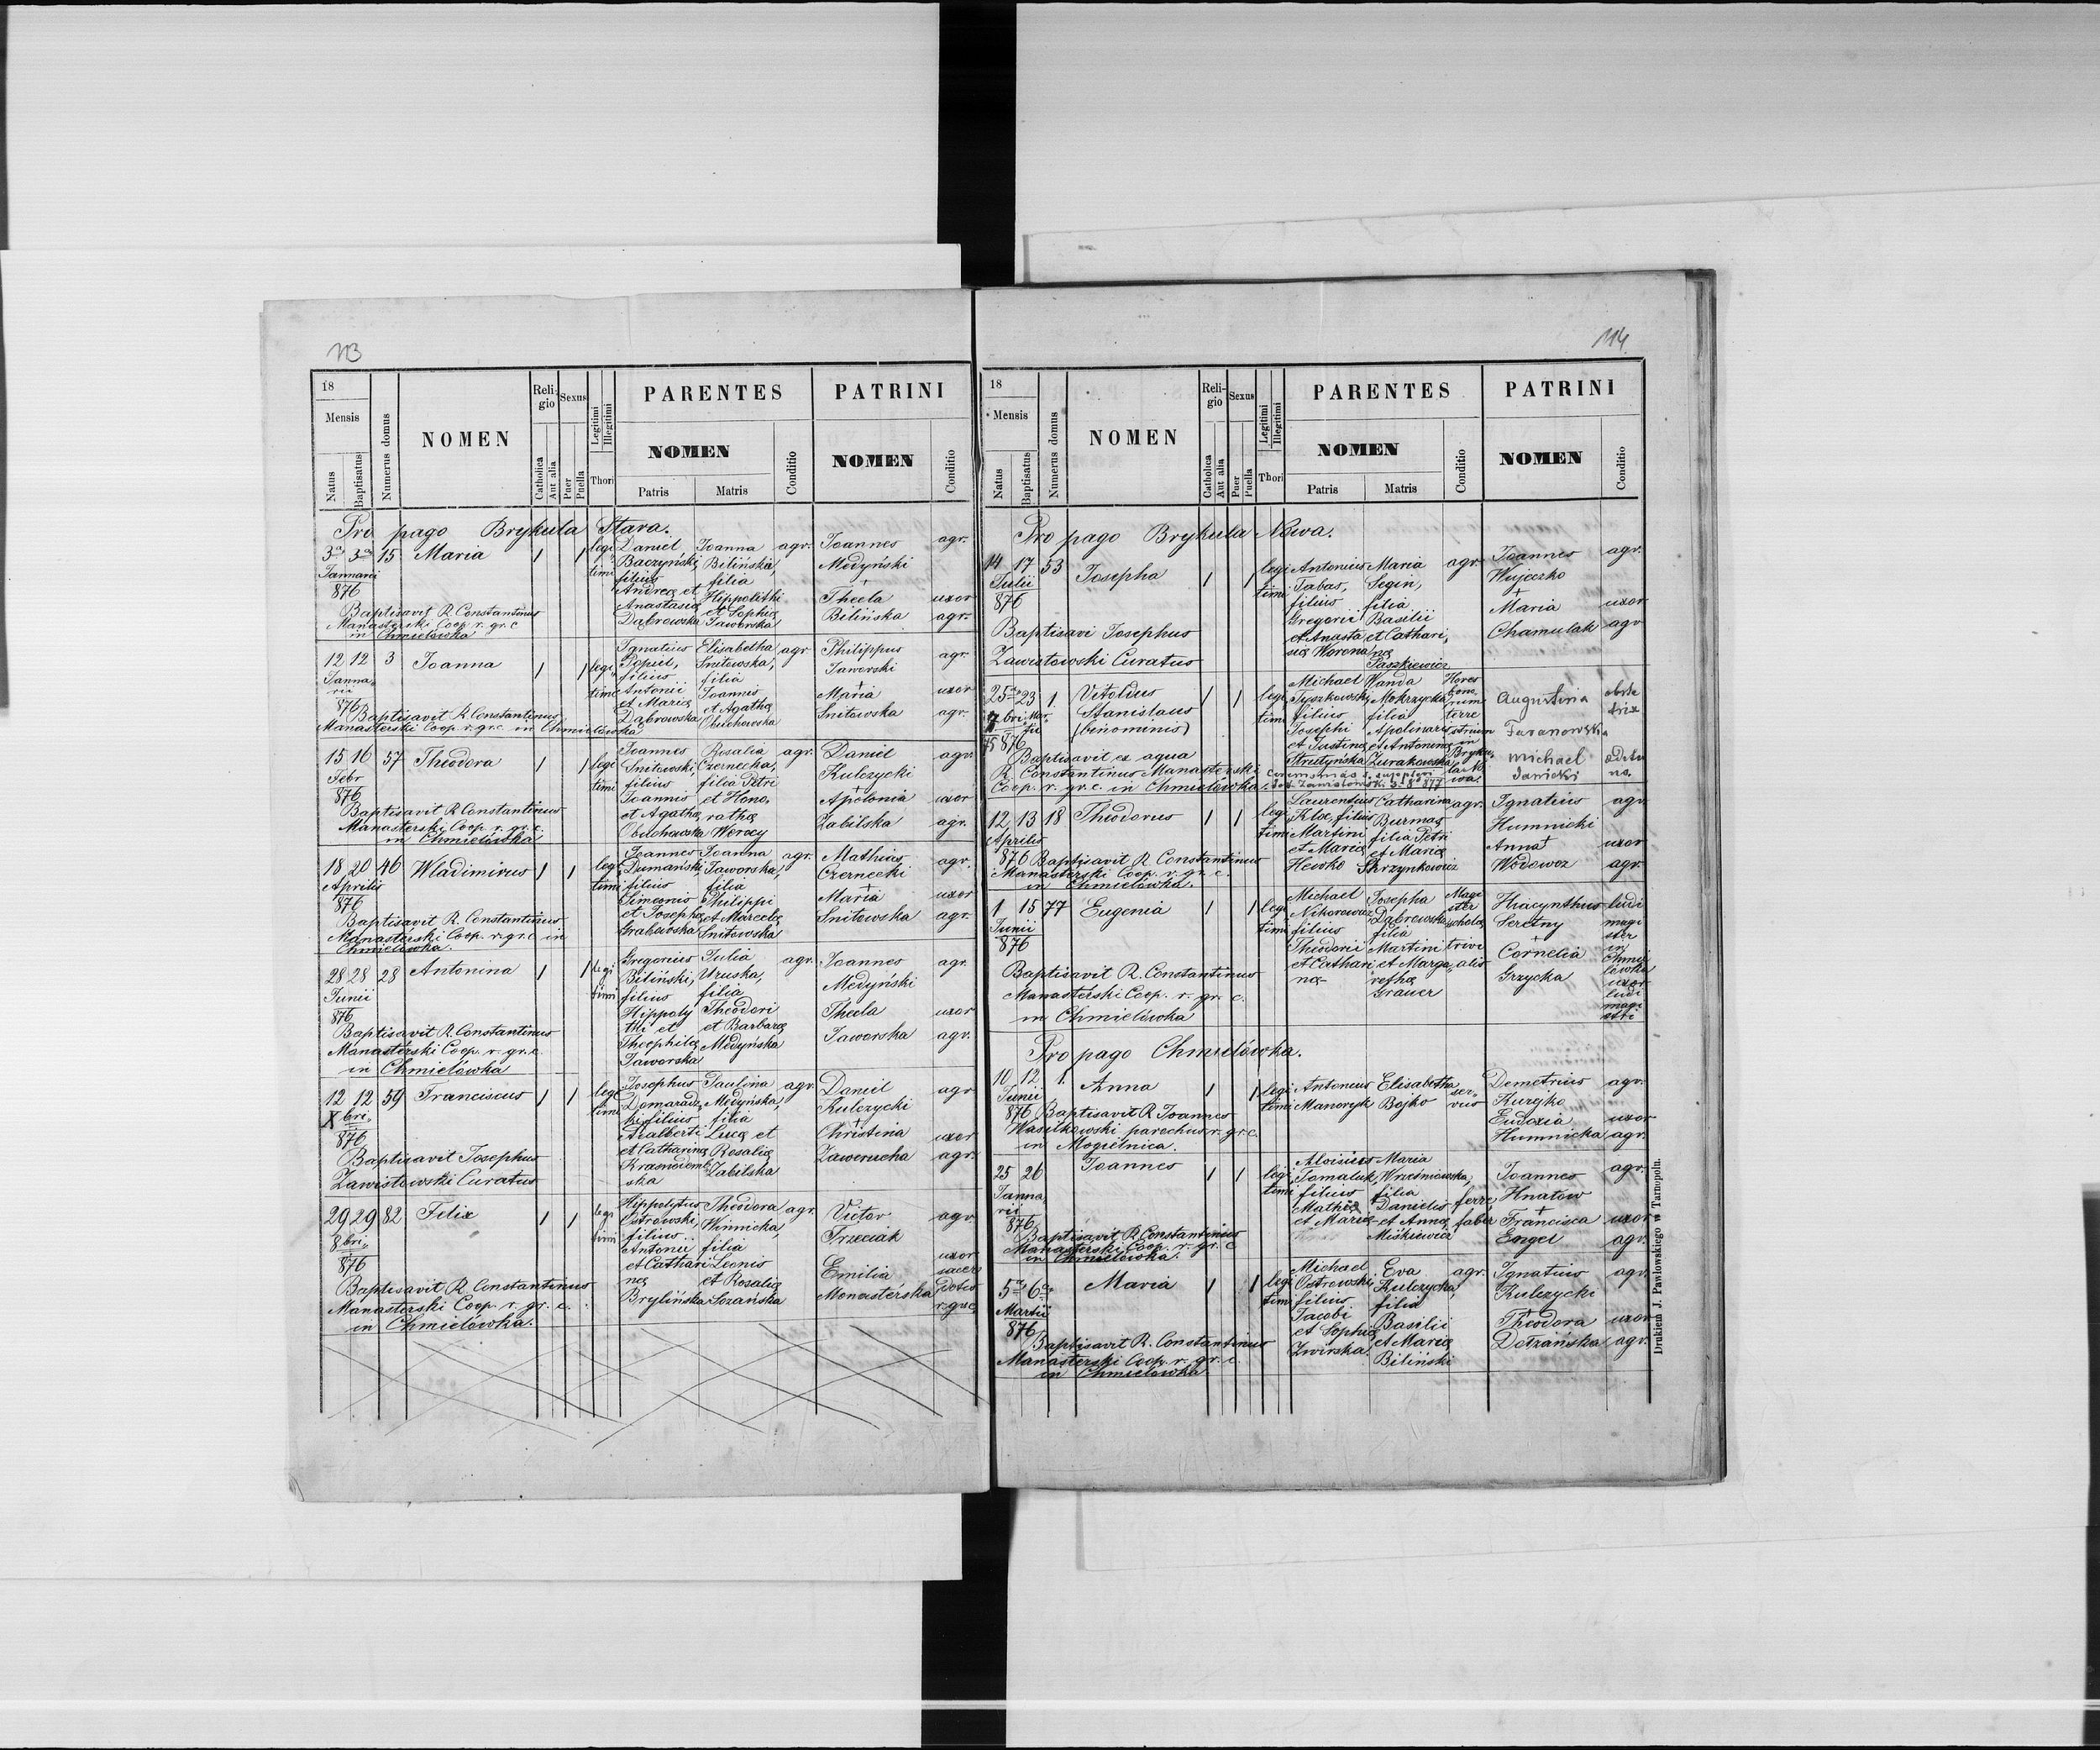 113
18
Mensis
Natus
Baptisatus
Numerus domus
NOMEN
Religio
Catholica
Aut alia
Sexus
Puer
Puella
Legitimi
Illegitimi
Thori
PARENTES
NOMEN
Patris
Matris
Conditio
PATRINI
NOMEN
Conditio
Pro pago Brykula Stara.
3a 3a 15 Maria 1 1 legi
timi
Januarii
876
Baptisavit R. Constantinus
Manasterski Coop. r. gr. c
in Chmielówka
Daniel
Baczyński
filius
Andreæ et
Anastasiæ
Dąbrowska
Joanna
Bilińska,
filia
Hippolithi
et Sophiæ
Jaworska
agr.
Joannes
Medyński
+
Thecla
Bilińska
agr.
uxor
agr.
12 12 3 Joanna 1 1 legi
timi
Janua
rii
876
Baptisavit R. Constantinus
Manasterski Coop. r. gr. c. in Chmielówka
Ignatius
Popiel,
filius
Antonii
et Mariæ
Dąbrowska
Elisabetha
Snitowska,
filia
Joannis
et Agathæ
Obuchowska
agr
Philippus
Jaworski
+
Maria
Snitowska
agr.
uxor
agr.
15 16 57 Theodora 1 1 legi
timi
Febr
876
Baptisavit R Constantinus
Manasterski Coop. r. gr. c.
in Chmielówka
Joannes
Snitowski,
filius
Joannis
et Agathæ
Obuchowska
Rosalia
Czernecka,
filia Petri
et Hono,
rathæ
Werocy
agr.
Daniel
Kulczycki
+
Apolonia
Zabilska
agr.
uxor
agr.
18 20 46 Wladimirus 1 1 legi
timi
Aprilis
876
Baptisavit R. Constantinus
Manasterski Coop. r. gr. c in
Chmielówka.
Joannes
Dumański
filius
Simeonis
et Josephæ
Grabowska
Joanna
Jaworska,
filia
Philippi
et Marcelæ
Snitowska
agr.
Mathias
Czernecki
+
Maria
Snitowska
agr.
uxor
agr.
28 28 28 Antonina 1 1 legi
timi
Junii
876
Baptisavit R. Constantinus
Manasterski Coop. r. gr. c.
in Chmielówka
Gregorius
Biliński,
filius
Hippoly
thi et
Theophilæ
Jaworska
Julia
Uruska,
filia
Theodori
et Barbaræ
Medyńska
agr.
Joannes
Medyński
Thecla
Jaworska
agr.
uxor
agr.
12 12 59 Franciscus 1 1 legi
timi
Xbri.
876
Baptisavit Josephus
Zawistowski Curatus
Josephus
Domaradz
ki filius
Adalberti
et Catharinæ
ska
Paulina
Medyńska,
filia
Lucæ et
Rosaliæ
Zabilska
agr.
Daniel
Kulczycki
+
Christina
Zawerucha
agr
uxor
agr.
29 29 82 Felix 1 1 legi
timi
8bri.
876
Baptisavit R. Constantinus
Manasterski Coop. r. gr. c.
in Chmielówka.
Hippolytus
Ostrowski,
filius
Antonii
et Cathari
næ
Brylińska
Theodora
Winnicka,
filia
Leonis
et Rosaliæ
Sozańska
agr.
Victor
Trzeciak
Emilia
Monasterska
agr
uxor
sacer
dotis
r. gr. c
114
18
Mensis
Natus
Baptisatus
Numerus domus
NOMEN
Religio
Catholica
Aut alia
Sexus
Puer
Puella
Legitimi
Illegitimi
Thori
PARENTES
NOMEN
Patris
Matris
Conditio
PATRINI
NOMEN
Conditio
Pro pago Brykula Nowa.
14 17 53 Josepha 1 1 legi
timi
Julii
876
Baptisavi Josephus
Zawistowski Curatus
Antonius
Tabas,
filius
Gregorii
et Anasta
siæ Worona
Maria
Segin,
filia
Basilii
et Cathari,
næ
Paszkiewicz
agr.
Joannes
Wujeczko
+
Maria
Chamulak
agr.
uxor
agr
25 23 1. Vitoldus
Stanislaus
(binominis)
1 1 legi
timi
876
Baptisavit ex aqua
R. Constantinus Manasterski
Coop. r. gr. c. in Chmielówka.
Michael
Tyszkowski
filius
Josephi
et Justinæ
Strutyńska
Wanda
Mokrzycka
filia
Apolinaris
et Antoninæ
Żurakowska
Augustina
Taranowska
Michael
Janicki
obste
trix
12 13 18 Theodorus 1 1 legi
timi
Aprilis
876 Baptisavit R. Constantinus
Manasterski Coop. r. gr. c.
in Chmielówka.
Laurentius
Klox, filius
Martini
et Mariæ
Hewko
Catharina
Burmas
filia Petri
et Mariæ
Skrzynkowicz
agr.
Ignatius
Humnicki
+
Anna
Wodewoz
agr.
uxor
agr.
1 15 77 Eugenia 1 1 legi
timi
Junii
876
Baptisavit R. Constantinus
Manasterski Coop. r. gr. c.
in Chmielówka
Michael
Nikorowicz
filius
Theodorii
et Cathari
næ
Josepha
Dąbrowska
filia
Martini
et Marga,
rethæ
Grauer
Magi
ster
scholæ
trivi
alis
Hiacynthus
Seretny
+
Cornelia
Grzycka
ludi
magi
ster
in
Chmie
lówka
uxor
ludi
magi
stri
Pro pago Chmielówka.
10 12 1. Anna 1 1 legi
timi
Junii
876 Baptisavit R Joannes
Wasilkowski parochus r. gr. c.
in Mogielnica.
Antonius
Manoryk
Elisabetha
Bojko
ser,
vus
Demetrius
Kuryko
Eudoxia
Humnicka
agr.
uxor
agr.
25 26 Joannes 1 1 legi
timi
Janua
rii
876
Baptisavit R. Constantinus
Manasterski Coop. r. gr. c
in Chmielówka.
Aloisius
Tomaluk
filius
Mathiæ
et Mariæ
Maria
Wrześniowska,
filia
Danielis
et Annæ
Miśkiewicz
ferre,
faber
Joannes
Hnatow
+
Francisca
Engel
agr.
uxor
agr.
5a 6a Maria 1 1 legi
timi
Martii
876
Baptisavit R. Constantinus
Manasterski Coop. r. gr. c.
in Chmielówka.
Michael
Ostrowski
filius
Jacobi
et Sophiæ
Zwirska
Eva
Kulczycka,
filia
Basilii
et Mariæ
Biliński
agr.
Ignatius
Kulczycki
+
Theodora
Detzańska
agr.
uxor
agr.
Drukiem J. Pawłowskiego w Tarnopolu.